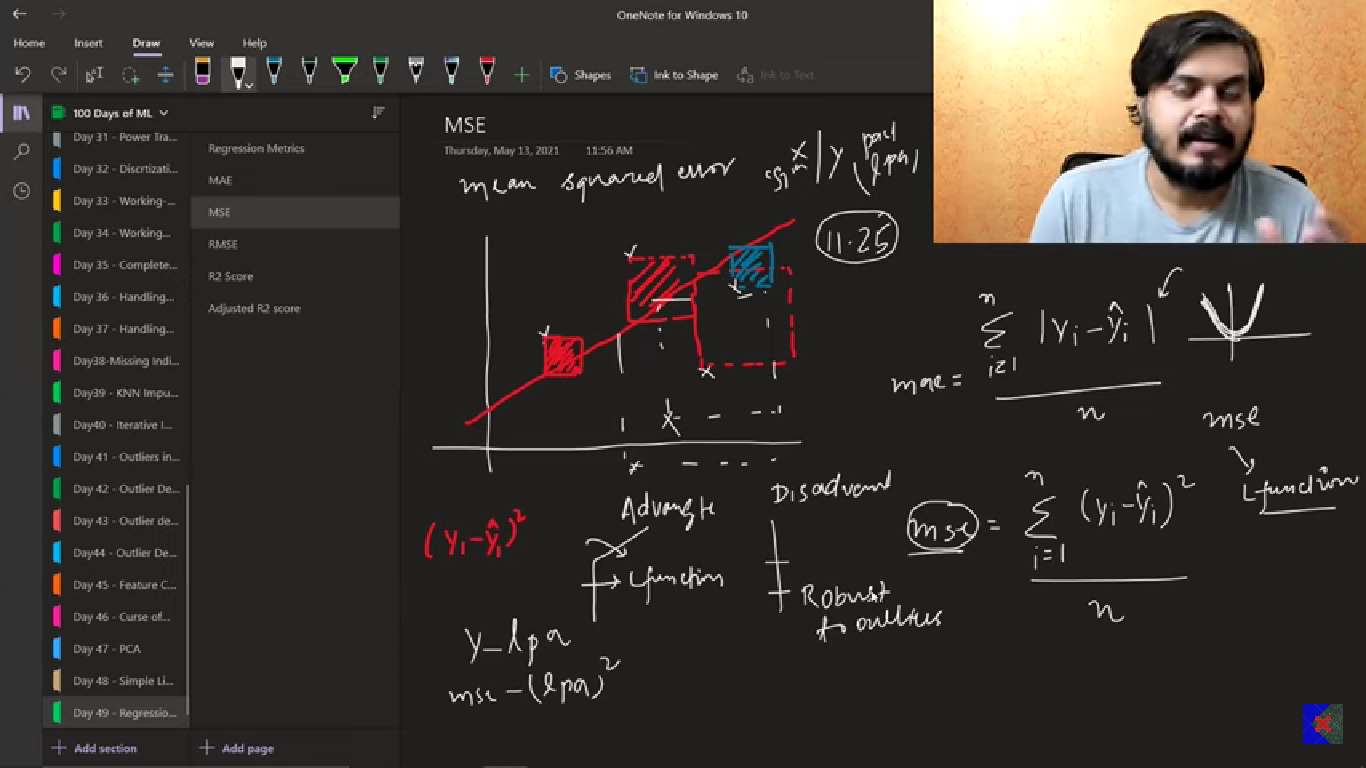 OneNote for Windows 10
Home Insert Draw View Help
Shapes Ink to Shape Ink to Text
100 Days of ML
Day 31 - Power Tra...
Day 32 - Discrtizati...
Day 33 - Working-...
Day 34 - Working...
Day 35 - Complete...
Day 36 - Handling...
Day 37 - Handling...
Day38-Missing Indi...
Day39 - KNN Impu...
Day40 - Iterative I...
Day 41 - Outliers in...
Day 42 - Outlier De...
Day 43 - Outlier de...
Day44 - Outlier De...
Day 45 - Feature C...
Day 46 - Curse of...
Day 47 - PCA
Day 48 - Simple Li...
Day 49 - Regressio...
Add section
Regression Metrics
MAE
MSE
RMSE
R2 Score
Adjusted R2 score
Add page
MSE
Thursday, May 13, 2021 11:56 AM
mean squared error
x | y (lpa)
11.25
mae = Σ i=1 n |yi-ŷi| / n
mse
Lfunction
mse = Σ i=1 n (yi-ŷi)² / n
(yi-ŷi)²
Advangte
Lfunction
Disadvant
Robust
to outliers
y - lpa
mse - (lpa)²